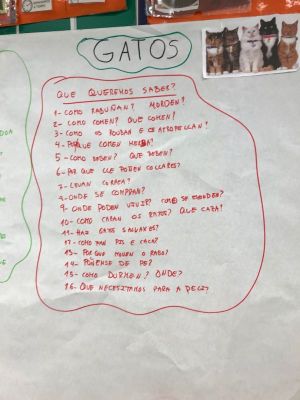 GATOS
QUE QUEREMOS SABER?
1- COMO RABUÑAN? MORDEN?
2- COMO COMEN? QUE COMEN?
3- COMO OS ROUBAN E OS ATROPELLAN!
4- PORQUE COMEN HERBA?
5- COMO BEBEN? QUE BEBEN?
6- POR QUE LLE POÑEN COLLARES?
7- LEVAN CORREA?
8- ONDE SE COMPRAN?
9- ONDE PODEN VIVIR? COMO SE ESCONDEN?
10- COMO CAZAN OS RATOS? QUE CAZA?
11- HAI GATOS SALVAXES?
12- COMO FAN PIS E CACA?
13- POR QUE MOVEN O RABO?
14- PÓÑENSE DE PE?
15- COMO DURMEN? ONDE?
16- QUE NECESITAMOS PARA A